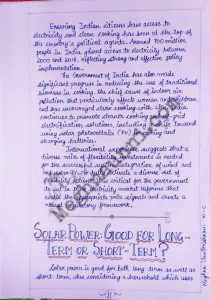 Ensuring Indian citizens have access to
electricity and clean cooking has been at the top of
the country's political agenda. Around 750 million
people in India gained access to electricity between
2000 and 2019, reflecting strong and effective policy
implementation.
The Government of India has also made
significant progress in reducing the use of traditional
biomass in cooking, the chief cause of indoor air
pollution that particularly affects women and children
and has encouraged clean cooking with LPG. India
continues to promote cleaner cooking and off-grid
electrification solutions, including a toward
using solar photovoltaic (PV) cooking and
charging batteries.
International experience suggests that a
diverse mix of flexibility investments is needed
for the successful integration of wind and
solar
electricity market reforms that
appropriate price signals and create a
framework.
SOLAR POWER: GOOD FOR LONG-
TERM OR SHORT-TERM?
Solar power is good for both long-term as well as
short-term. Like considering a household which uses